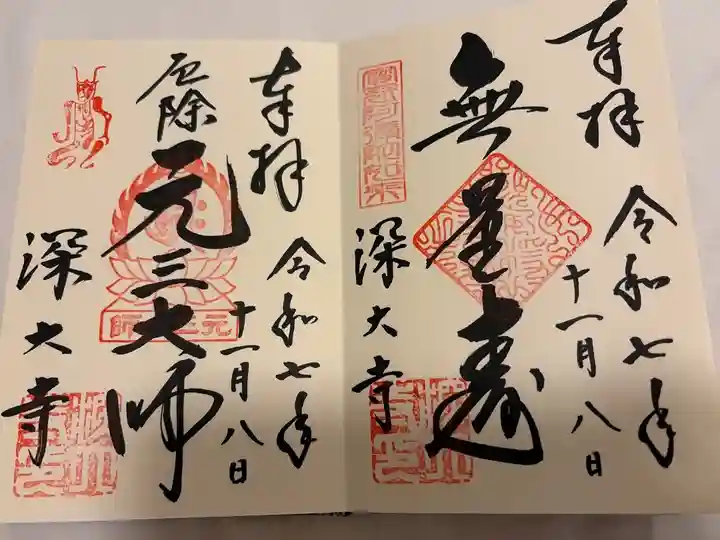 奉拝
令和七年
十一月八日
無量寿
深大寺
奉拝
令和七年
十一月八日
厄除
元三大師
元三大師
深大寺